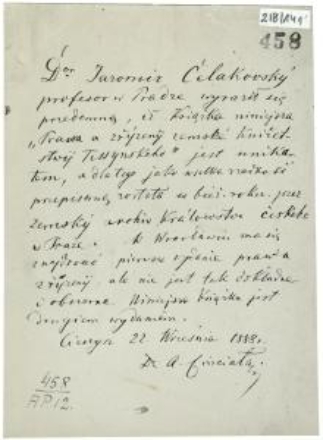 218/141
458
Dor Jaromir Čelakovský
profesor w Pradze wyraził się
przedemną, iż książka niniejsza
„Prawa a zřízeny zemské knížet-
stwij Tessynského" jest unika-
tem, a dlatego jako wielka rzadkość
przepisaną została w bież. roku przez
zemský archiv Království českého
w Praze. W Wrocławiu ma się
znajdować pierwsze wydanie prawa
zřízený ale nie jest tak dokładne
i obszerne. Niniejsza książka jest
drugiem wydaniem.
Cieszyn 22 Września 1888.
Dr A. Cinciała
458
RP 12.